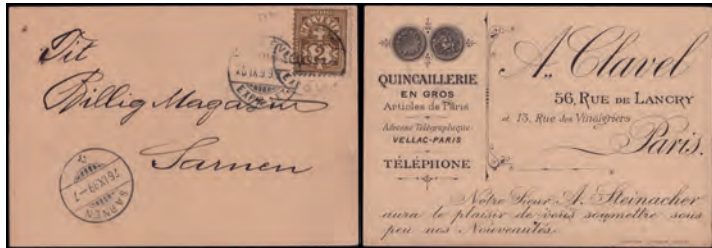 Tit
Billig Magasin
Sarnen
HELVETIA
2
SARNEN
26.IX.99–7
QUINCAILLERIE
EN GROS
Articles de Paris
Adresse Télégraphique
VELLAC-PARIS
TÉLÉPHONE
A. Clavel
56, RUE DE LANCRY
et 13, Rue des Vinaigriers
Paris.
Notre Sieur A. Steinacher
aura le plaisir de vous soumettre sous
peu nos Nouveautés.